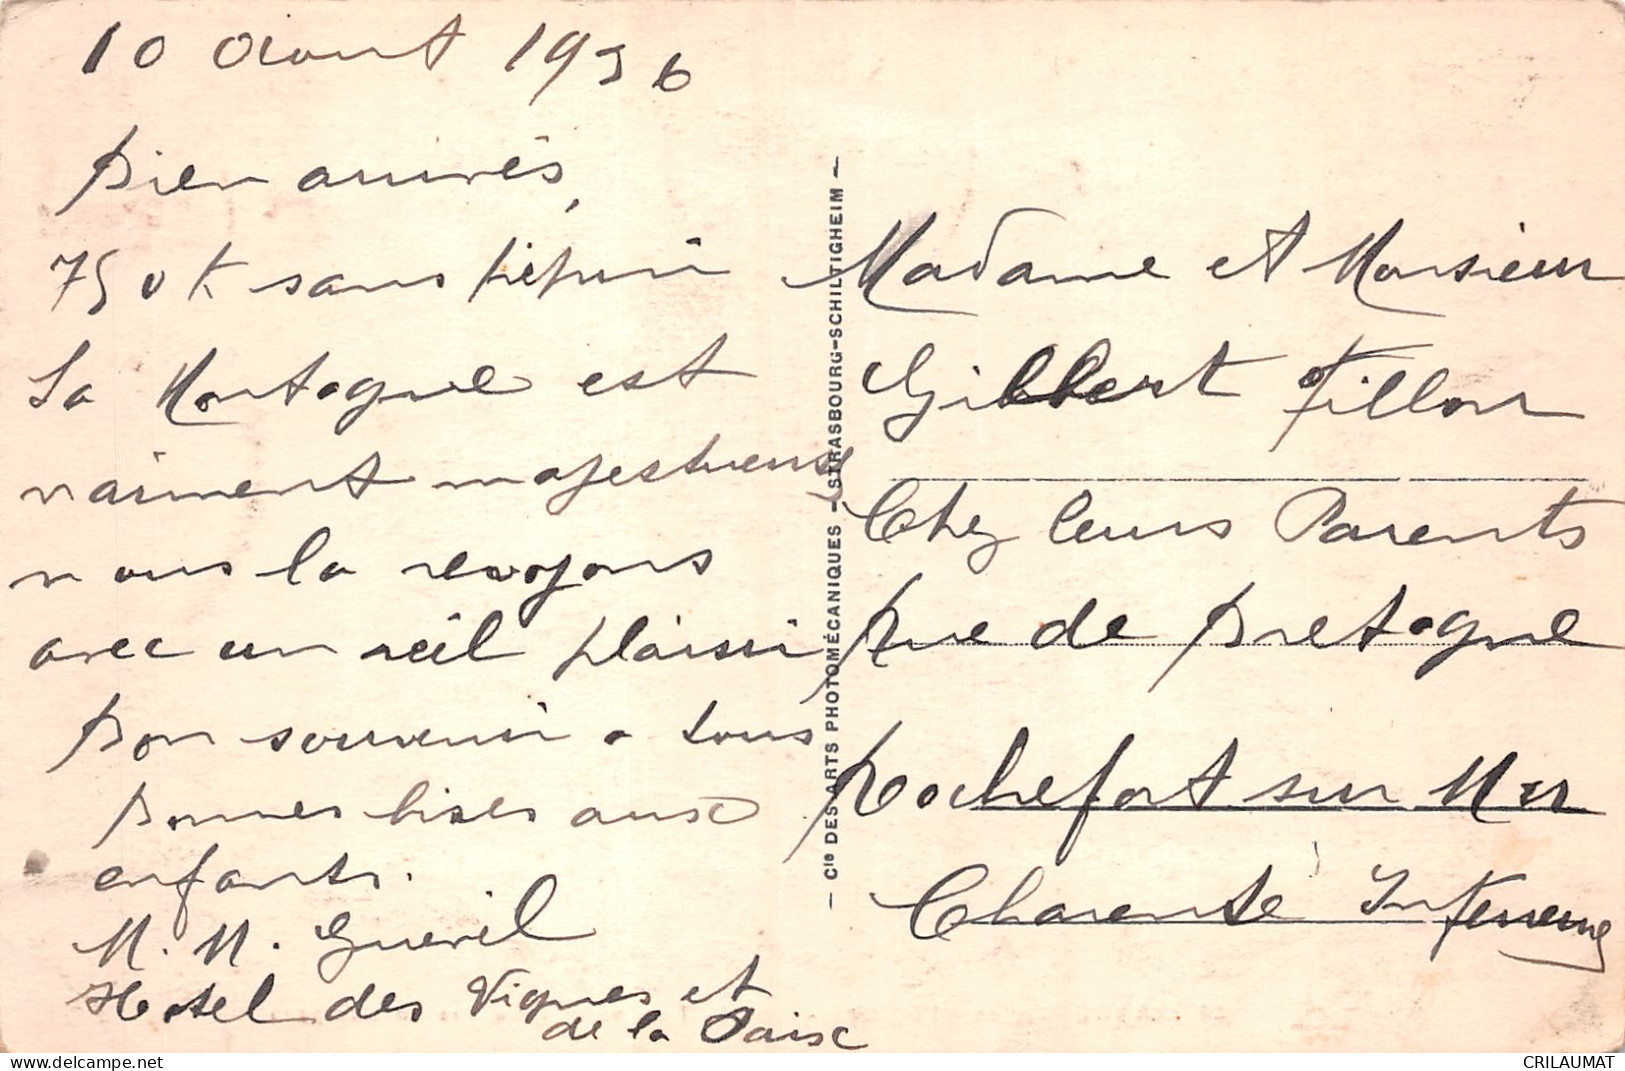 10 Aout 1936
Bien arrivés,
750 k sans pépin
La Montagne est
vraiment majestueuse
nous la revoyons
avec un réel plaisir
Bon souvenir a tous
Bonnes bises aux
enfants.
M. M. Gueril
Hotel des Vignes et
de la Paix
— Cie DES ARTS PHOTOMÉCANIQUES - STRASBOURG-SCHILTIGHEIM —
Madame et Monsieur
Gilbert Fillon
Chez leurs Parents
Rue de Bretagne
Rochefort sur Mer
Charente Inferieure
CRILAUMAT